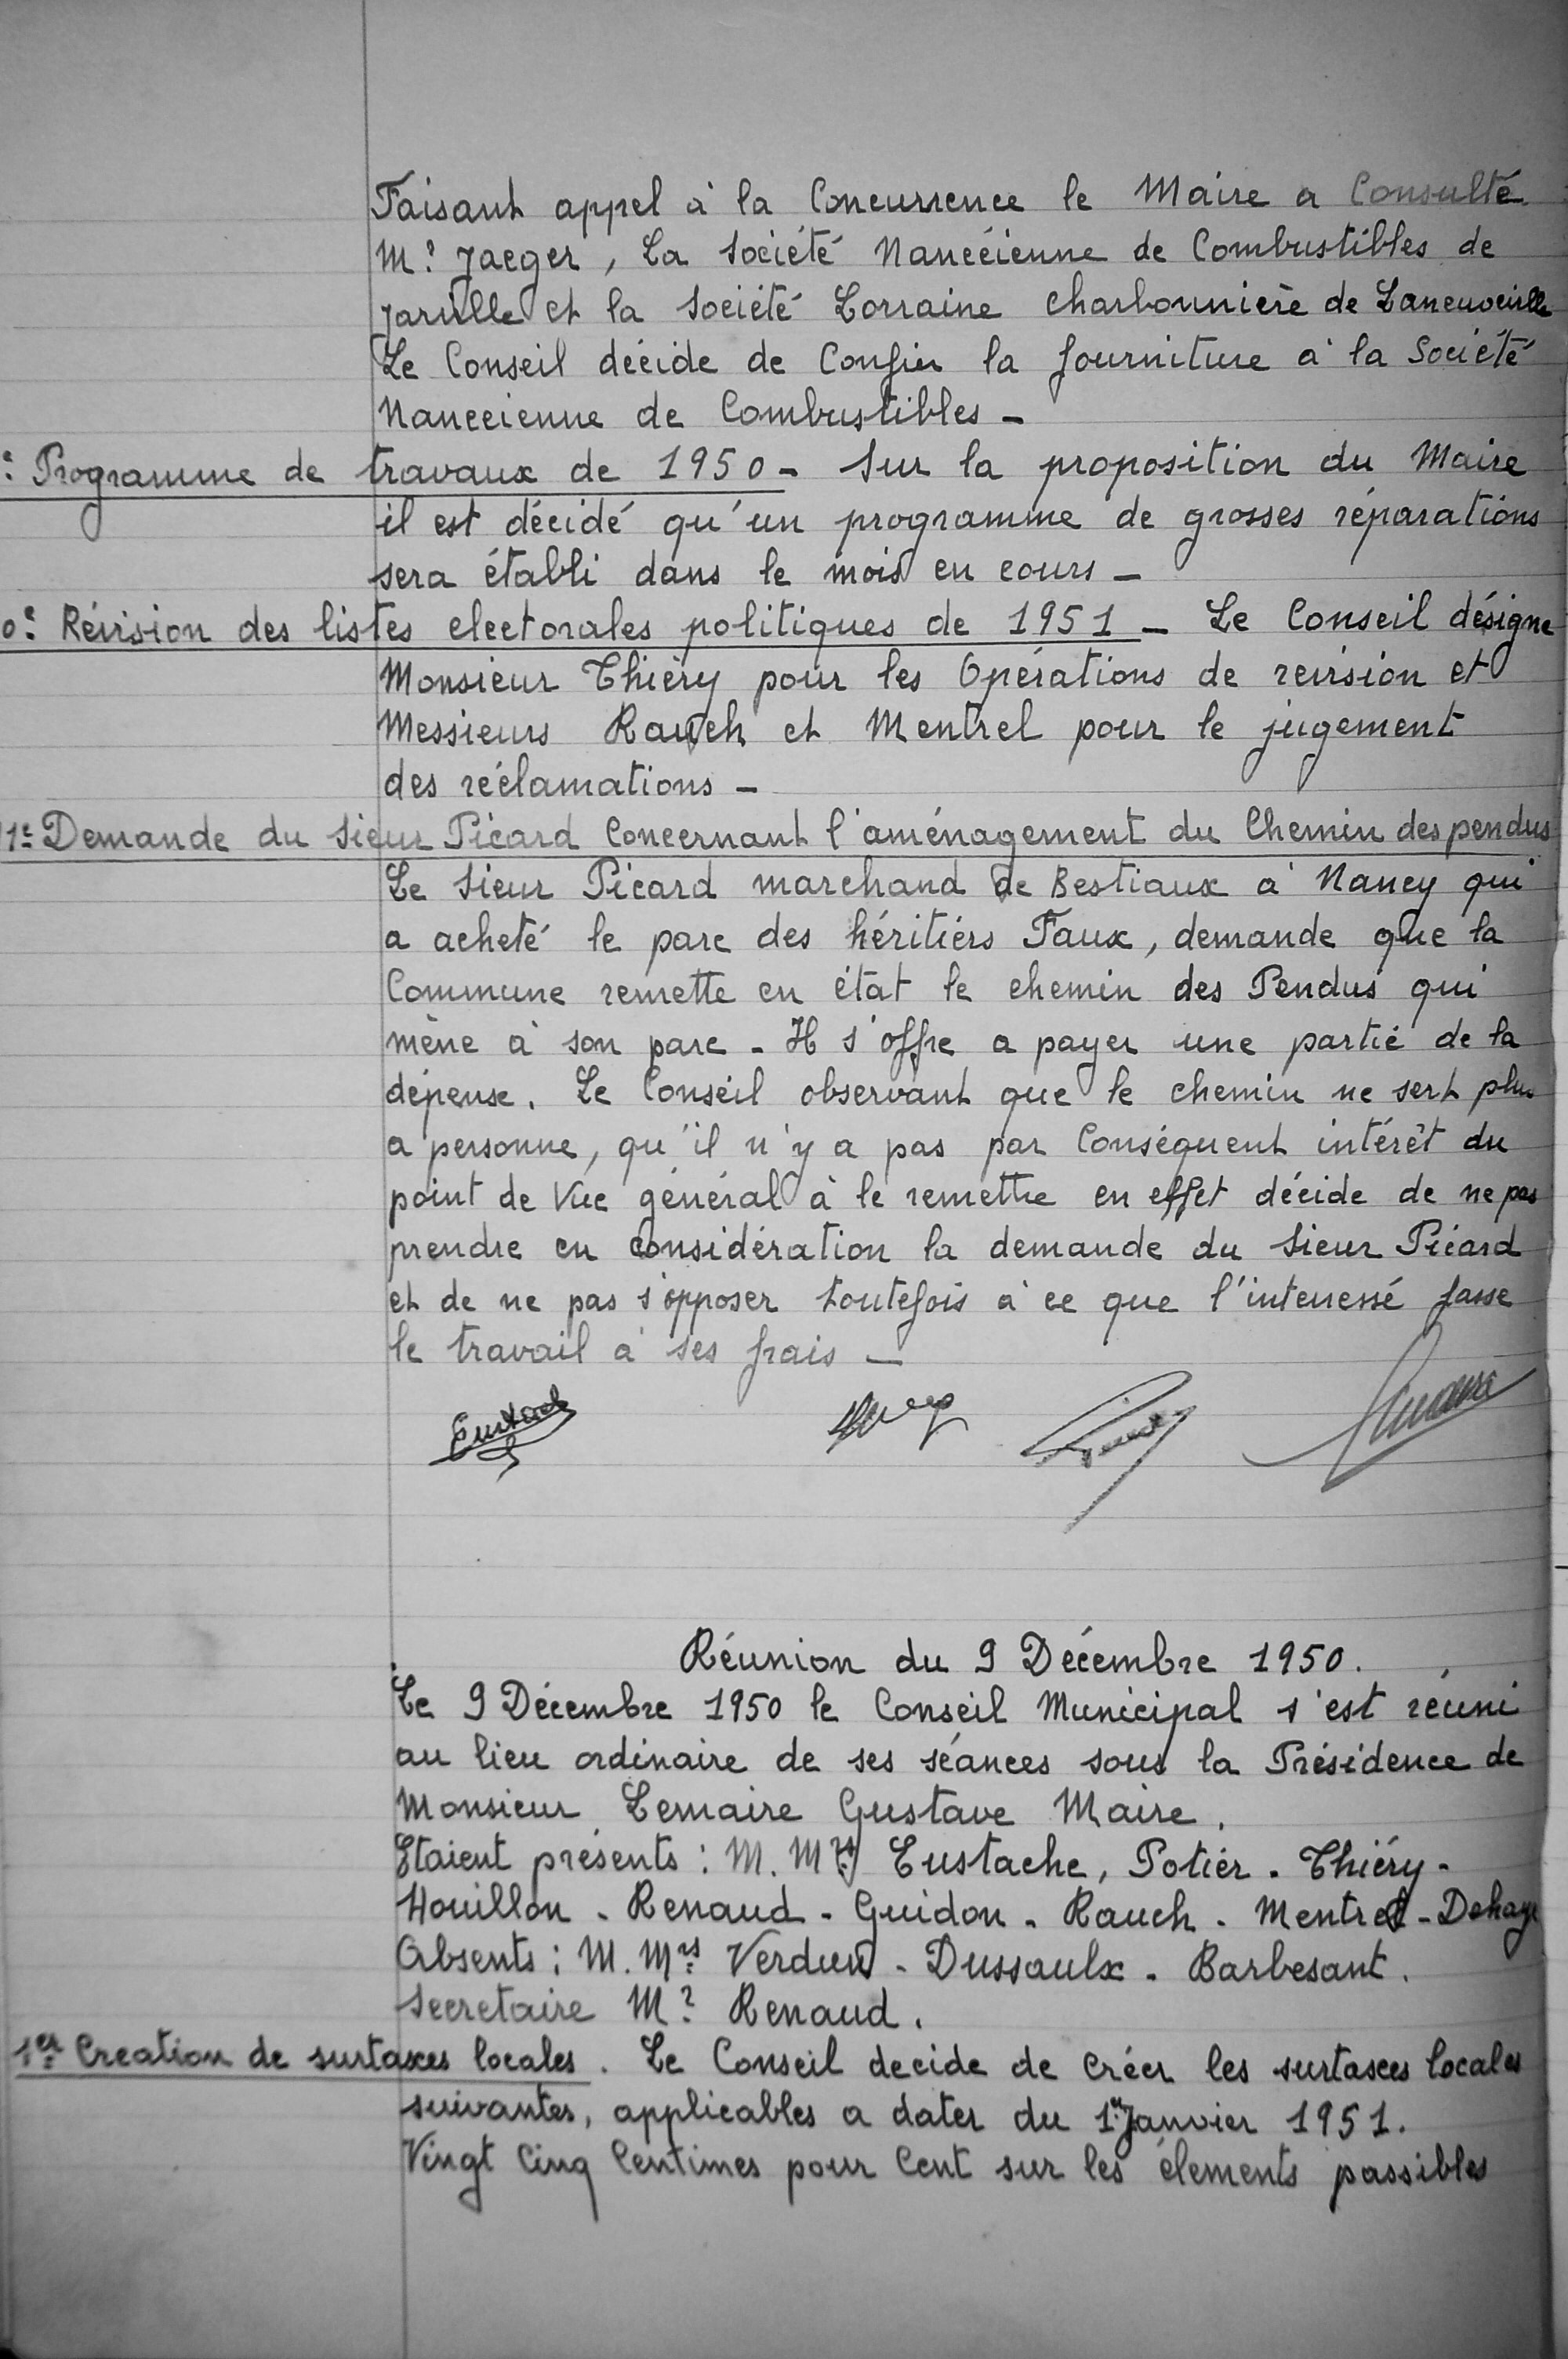 Faisant appel à la Concurrence le Maire a Consulté
Mr Jaeger, La Société Nancéienne de Combustibles de
Jarville et la Société Lorraine charbonnière de Laneuveville
Le Conseil décide de Confier la fourniture à la Société
Nanceienne de Combustibles -
e: Programme de travaux de 1950 - Sur la proposition du Maire
il est décidé qu'un programme de grosses réparations
sera établi dans le mois en cours -
0e: Révision des listes electorales politiques de 1951 - Le Conseil désigne
Monsieur Thiéry pour les Opérations de revision et
Messieurs Rauch et Mentrel pour le jugement
des réclamations -
11e: Demande du Sieur Picard Concernant l'aménagement du Chemin des pendus
Le Sieur Picard marchand de Bestiaux à Nancy qui
a acheté le parc des héritiers Faux, demande que la
Commune remette en état le chemin des Pendus qui
mène à son parc - Il s'offre a payer une partie de la
dépense. Le Conseil observant que le chemin ne sert plus
a personne, qu'il n'y a pas par Conséquent intérêt du
point de Vue général à le remettre en effet décide de ne pas
prendre en considération la demande du Sieur Picard
et de ne pas s'opposer toutefois à ce que l'interessé fasse
le travail à ses frais -
Eustache
Réunion du 9 Décembre 1950.
Le 9 Décembre 1950 le Conseil Municipal s'est réuni
au lieu ordinaire de ses séances sous la Présidence de
Monsieur Lemaire Gustave Maire.
Etaient présents : M. Mrs Eustache, Potier - Thiéry -
Houillon - Renaud - Guidon - Rauch - Mentrel - Dehaye
Absents : M. Mrs Verdun - Dussaulx - Barbesant.
Secretaire Mr Renaud.
1er Creation de surtaxes locales. Le Conseil decide de Créer les surtaxes locales
suivantes, applicables a dater du 1er Janvier 1951.
Vingt Cinq Centimes pour Cent sur les élements passibles